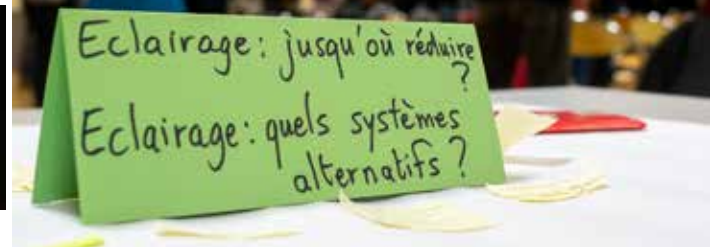 Eclairage: jusqu'où réduire
?
Eclairage: quels systèmes
alternatifs ?